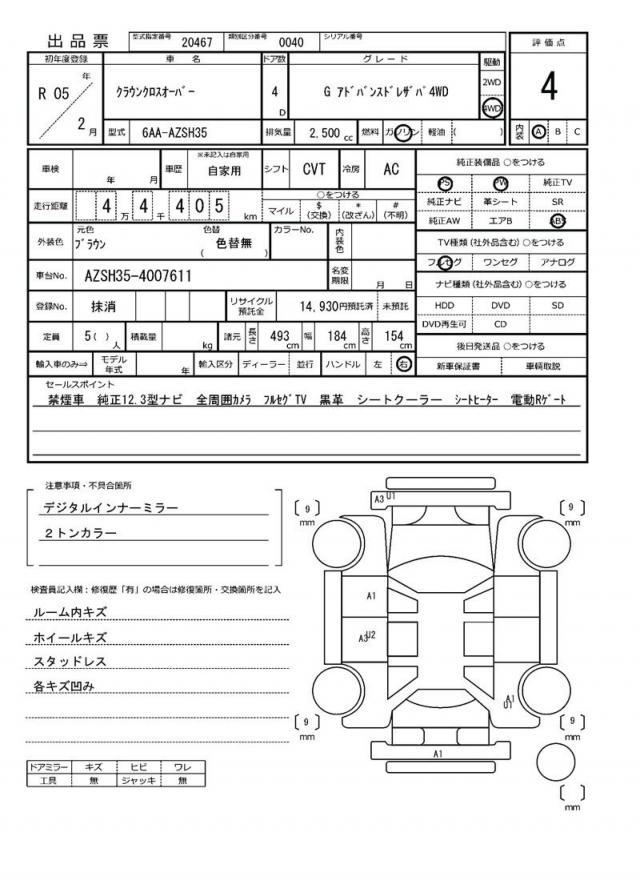 出品票 型式指定番号 20467 類別区分番号 0040 シリアル番号
評価点
4
内装 A B C
初年度登録 車名 ドア数 グレード 駆動
R 05 年 2 月
クラウンクロスオーバー 4 D G アドバンスドレザパ 4WD
2WD
4WD
型式 6AA-AZSH35 排気量 2,500 cc 燃料 ガソリン 軽油 ( )
車検 年 月 車歴 ※未記入は自家用 自家用 シフト CVT 冷房 AC
走行距離 4 万 4 千 4 0 5 km
○をつける
マイル $(交換) *(改ざん) #(不明)
外装色 元色 ブラウン 色替 ( 色替無 ) カラーNo. 内装色
車台No. AZSH35-4007611 名変期限 月 日
登録No. 抹消 リサイクル預託金 14,930円預託済 未預託
定員 5( )人 積載量 kg 諸元 長さ 493 cm 幅 184 cm 高さ 154 cm
輸入車のみ⇒ モデル年式 年 輸入区分 ディーラー 並行 ハンドル 左 右
純正装備品 ○をつける
PS PW 純正TV
純正ナビ 革シート SR
純正AW エアB ABS
TV種類(社外品含む)○をつける
フルセグ ワンセグ アナログ
ナビ種類(社外品含む)○をつける
HDD DVD SD
DVD再生可 CD
後日発送品 ○をつける
新車保証書 車輌取説
セールスポイント
禁煙車 純正12.3型ナビ 全周囲カメラ フルセグTV 黒革 シートクーラー シートヒーター 電動Rゲート
注意事項・不具合箇所
デジタルインナーミラー
2トンカラー
検査員記入欄:修復歴「有」の場合は修復箇所・交換箇所を記入
ルーム内キズ
ホイールキズ
スタッドレス
各キズ凹み
ドアミラー キズ ヒビ ワレ
工具 無 ジャッキ 無
A3 U1
[ 9 ] mm
[ 9 ] mm
A1
A3 U2
A1
U1
[ 9 ] mm
[ 9 ] mm
A1
[ ] mm